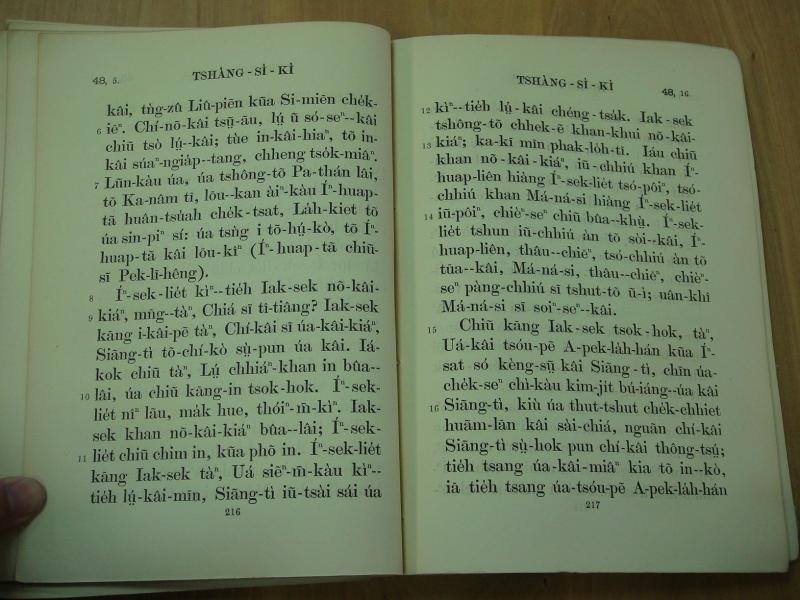 48, 5.
TSHÀNG - SÌ - KÌ
kâi, tǹg-zû Liû-piēn kūa Si-miēn che̍k-
6 iēⁿ. Chí-nō-kâi tsṳ̄-āu, lṳ́ ũ só-seⁿ--kâi
chiū tsò lṳ́--kâi; tùe in-kâi-hiaⁿ, tõ in-
kâi súaⁿ-ngia̍p--tang, chheng tso̍k-miâⁿ.
7 Lūn-kàu úa, úa tshông-tõ Pa-thán lâi,
tõ Ka-nâm tī, lōu--kan àiⁿ-kàu Íⁿ-huap-
tā huân-tsu̍ah che̍k-tsat, La̍h-kiet tõ
úa sin-piⁿ sí: úa tsǹg i tõ-hṳ́-kò, tõ Íⁿ-
huap-tā kâi lōu-kîⁿ (Íⁿ-huap-tā chiū-
sĩ Pek-lī-hêng).
8 Íⁿ-sek-lie̍t kìⁿ--tie̍h Iak-sek nõ-kâi-
9 kiáⁿ, mn̄g--tàⁿ, Chiá sĩ tî-tiâng? Iak-sek
kāng i-kâi-pẽ tàⁿ, Chí-kâi sĩ úa-kâi-kiáⁿ,
Siãng-tì tõ-chí-kò sṳ̀-pun úa kâi. Iá-
kok chiū tàⁿ, Lṳ́ chhiáⁿ-khan in bûa--
10 lâi, úa chiū kāng-in tsok-hok. Íⁿ-sek-
lie̍t nîⁿ lãu, ma̍k hue, thóiⁿ-m̄-kìⁿ. Iak-
sek khan nõ-kâi-kiáⁿ bûa--lâi; Íⁿ-sek-
11 lie̍t chiū chim in, kūa phõ in. Íⁿ-sek-lie̍t
kāng Iak-sek tàⁿ, Uá siẽⁿ-m̄-kàu kìⁿ--
tie̍h lṳ́-kâi-mīn, Siãng-tì iũ-tsài sái úa
216
TSHÀNG - SÌ - KÌ
48, 16.
12 kìⁿ--tie̍h lṳ́-kâi chéng-tsa̍k. Iak-sek
tshông-tõ chhek-ẽ khan-khui nõ-kâi-
13 kiáⁿ; ka-kī mīn phak-lo̍h-tī. Iáu chiū
khan nõ-kâi-kiáⁿ, iũ-chhiú khan Íⁿ-
huap-liên hiàng Íⁿ-sek-lie̍t tsó-pôiⁿ, tsó-
chhiú khan Má-ná-si hiàng Íⁿ-sek-lie̍t
14 iũ-pôiⁿ, chièⁿ-seⁿ chiū bûa--khṳ̀. Íⁿ-sek-
lie̍t tshun iũ-chhiú àn tõ sòi--kâi, Íⁿ-
huap-liên, thâu--chiẽⁿ, tsó-chhiú àn tõ
tūa--kâi, Má-ná-si, thâu--chiẽⁿ, chièⁿ-
seⁿ pàng-chhiú sĩ tshut-tõ ũ-ì; uân-khî
Má-ná-si sĩ soiⁿ-seⁿ--kâi.
15 Chiū kāng Iak-sek tsok-hok, tàⁿ,
Uá-kâi tsóu-pẽ A-pek-la̍h-hán kūa Íⁿ-
sat só kèng-sṳ̃ kâi Siãng-tì, chīn úa-
che̍k-seⁿ chì-kàu kim-ji̍t bú-iáng--úa kâi
16 Siãng-tì, kiù úa thut-tshut che̍k-chhiet
huãm-lãn kâi sài-chiá, nguãn chí-kâi
Siãng-tì sṳ̀-hok pun chí-kâi thông-tsṳ́;
tie̍h tsang úa-kâi-miâⁿ kia tõ in--kò,
iã tie̍h tsang úa-tsóu-pẽ A-pek-la̍h-hán
217